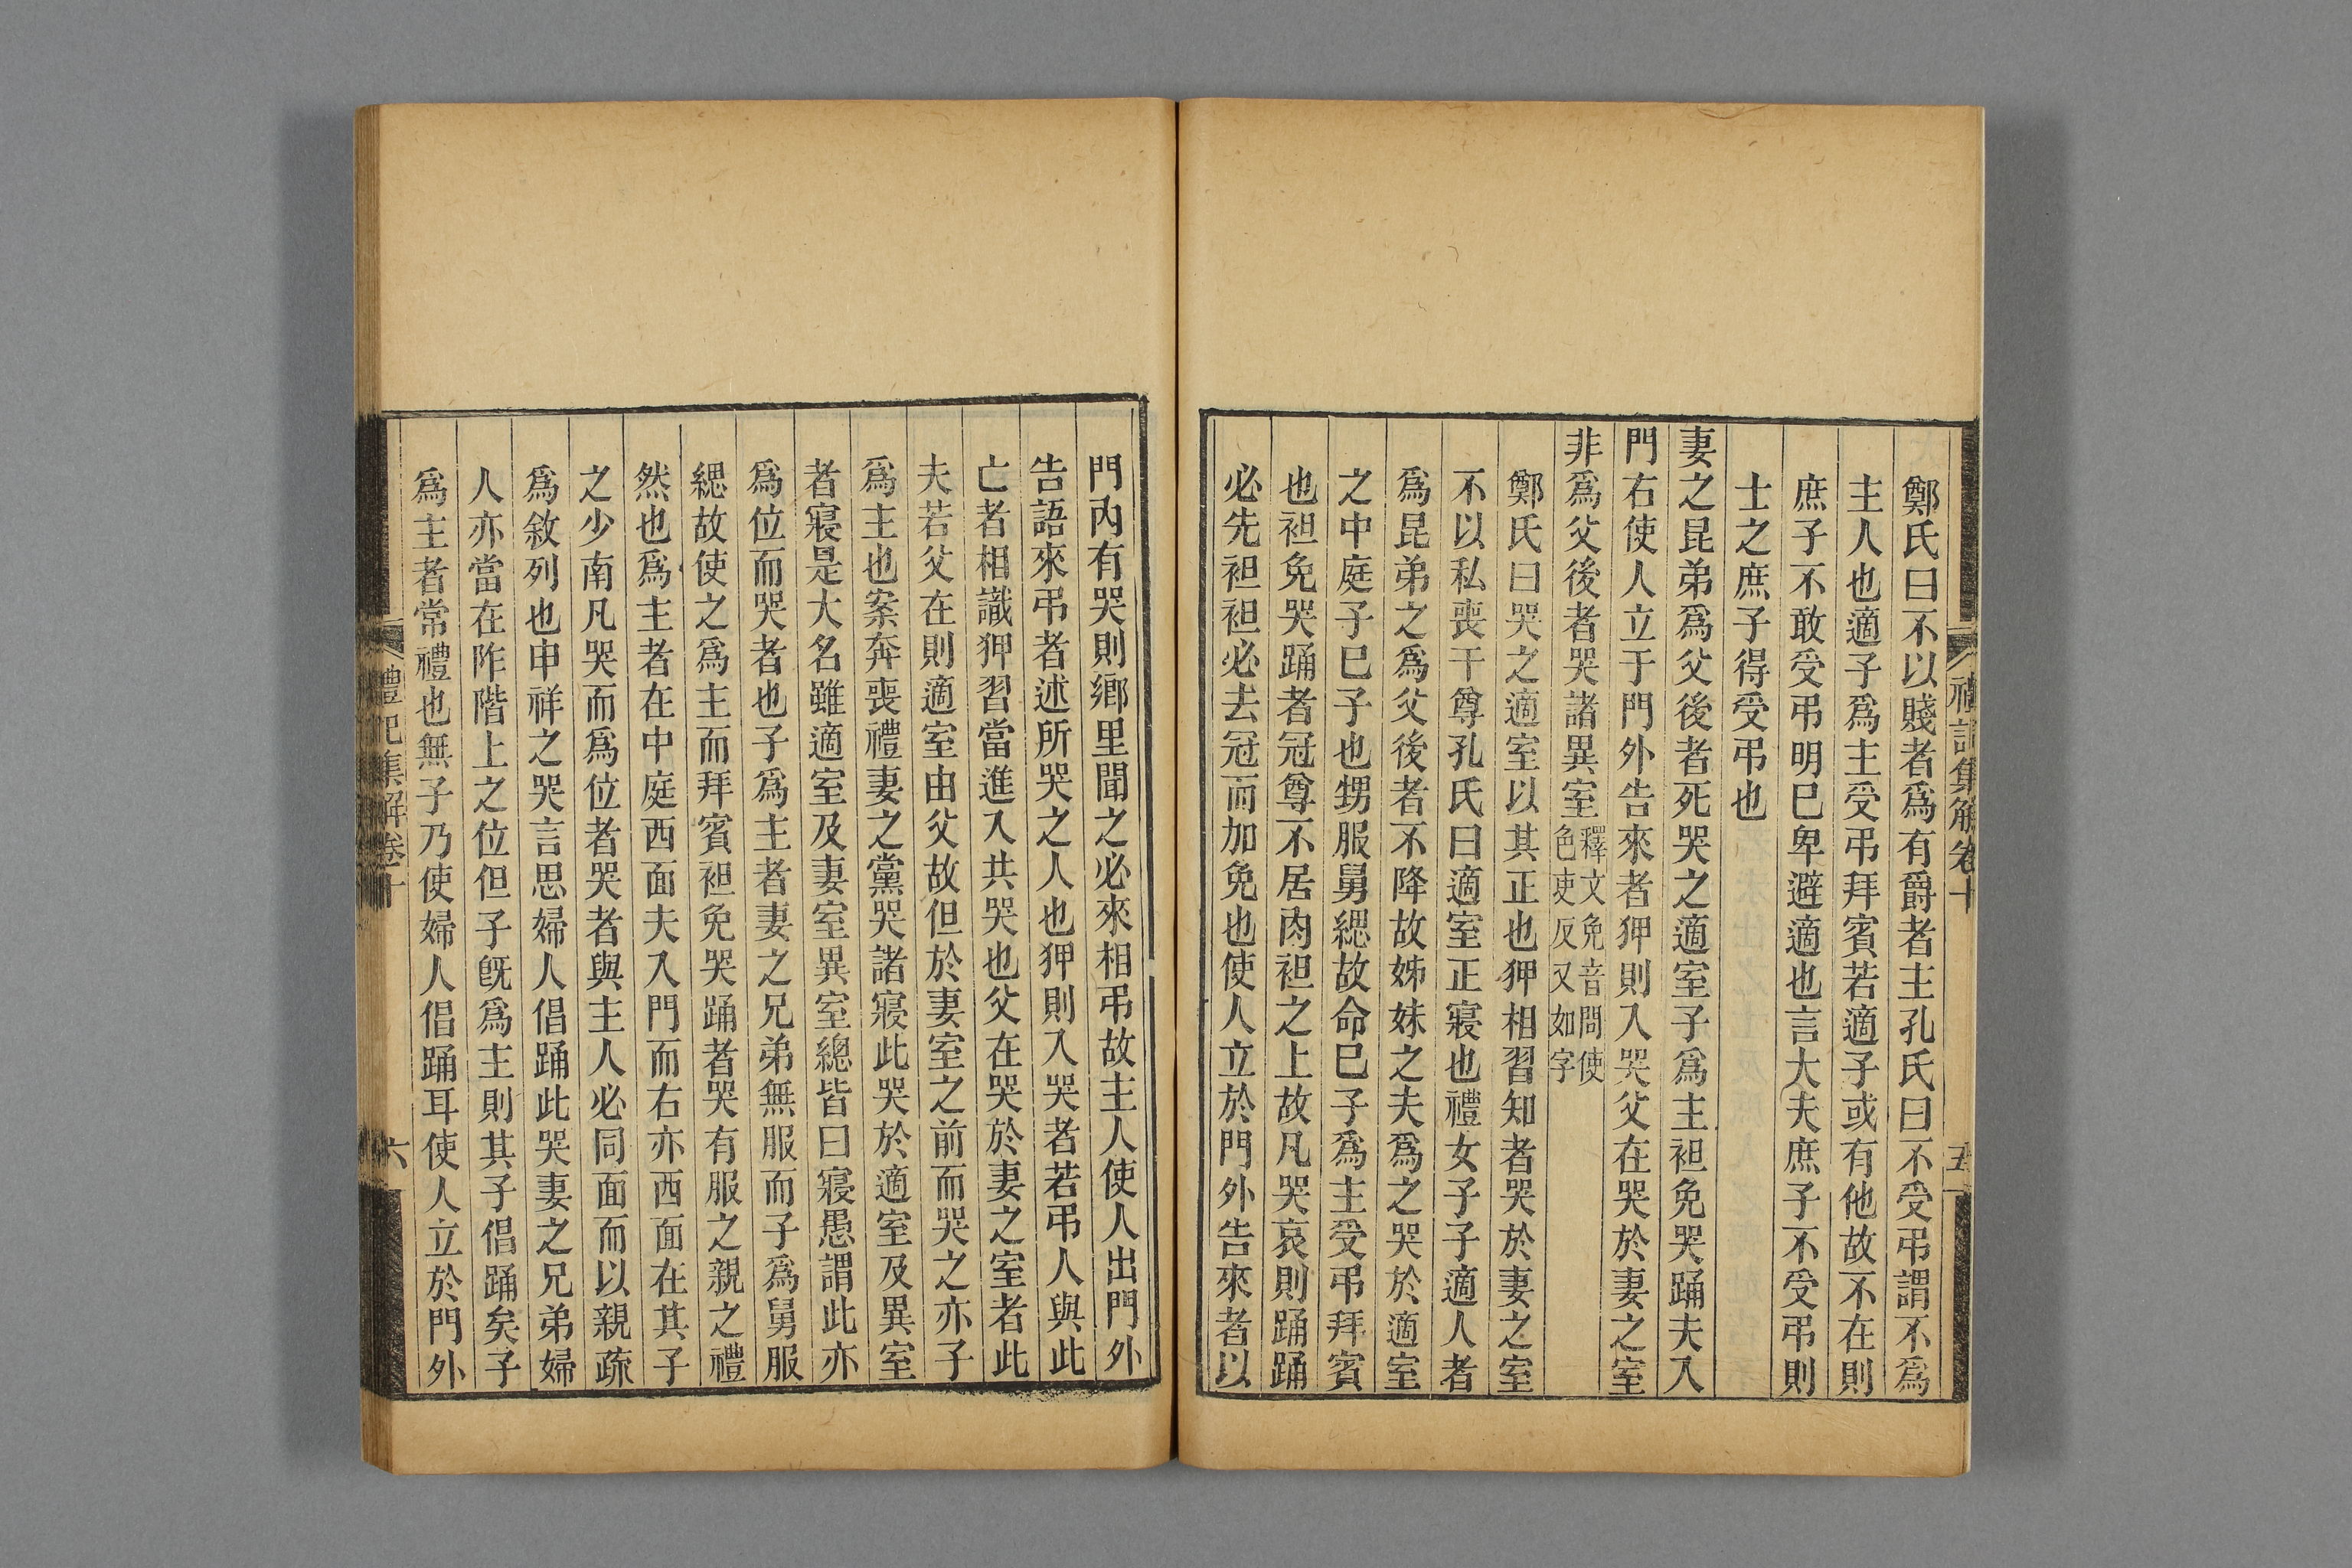 禮記集解卷十
五
鄭氏曰不以賤者爲有爵者主孔氏曰不受弔謂不爲
主人也適子爲主受弔拜賓若適子或有他故不在則
庶子不敢受弔明已卑避適也言大夫庶子不受弔則
士之庶子得受弔也
妻之昆弟爲父後者死哭之適室子爲主袒免哭踊夫入
門右使人立于門外告來者狎則入哭父在哭於妻之室
非爲父後者哭諸異室釋文免音問使
色吏反又如字
鄭氏曰哭之適室以其正也狎相習知者哭於妻之室
不以私喪干尊孔氏曰適室正寢也禮女子子適人者
爲昆弟之爲父後者不降故姊妹之夫爲之哭於適室
之中庭子已子也甥服舅緦故命已子爲主受弔拜賓
也袒免哭踊者冠尊不居肉袒之上故凡哭哀則踊踊
必先袒袒必去冠而加免也使人立於門外告來者以
門內有哭則鄉里聞之必來相弔故主人使人出門外
告語來弔者述所哭之人也狎則入哭者若弔人與此
亡者相識狎習當進入共哭也父在哭於妻之室者此
夫若父在則適室由父故但於妻室之前而哭之亦子
爲主也案奔喪禮妻之黨哭諸寢此哭於適室及異室
者寢是大名雖適室及妻室異室總皆曰寢愚謂此亦
爲位而哭者也子爲主者妻之兄弟無服而子爲舅服
緦故使之爲主而拜賓袒免哭踊者哭有服之親之禮
然也爲主者在中庭西面夫入門而右亦西面在其子
之少南凡哭而爲位者哭者與主人必同面而以親疏
爲敘列也申祥之哭言思婦人倡踊此哭妻之兄弟婦
人亦當在阼階上之位但子旣爲主則其子倡踊矣子
爲主者常禮也無子乃使婦人倡踊耳使人立於門外
禮記集解卷十
六